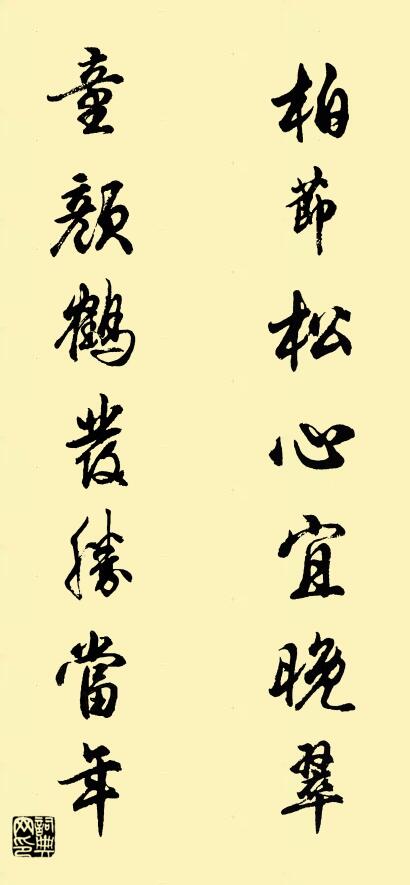 柏節松心宜晚翠
童顏鶴發勝當年
詞典网印